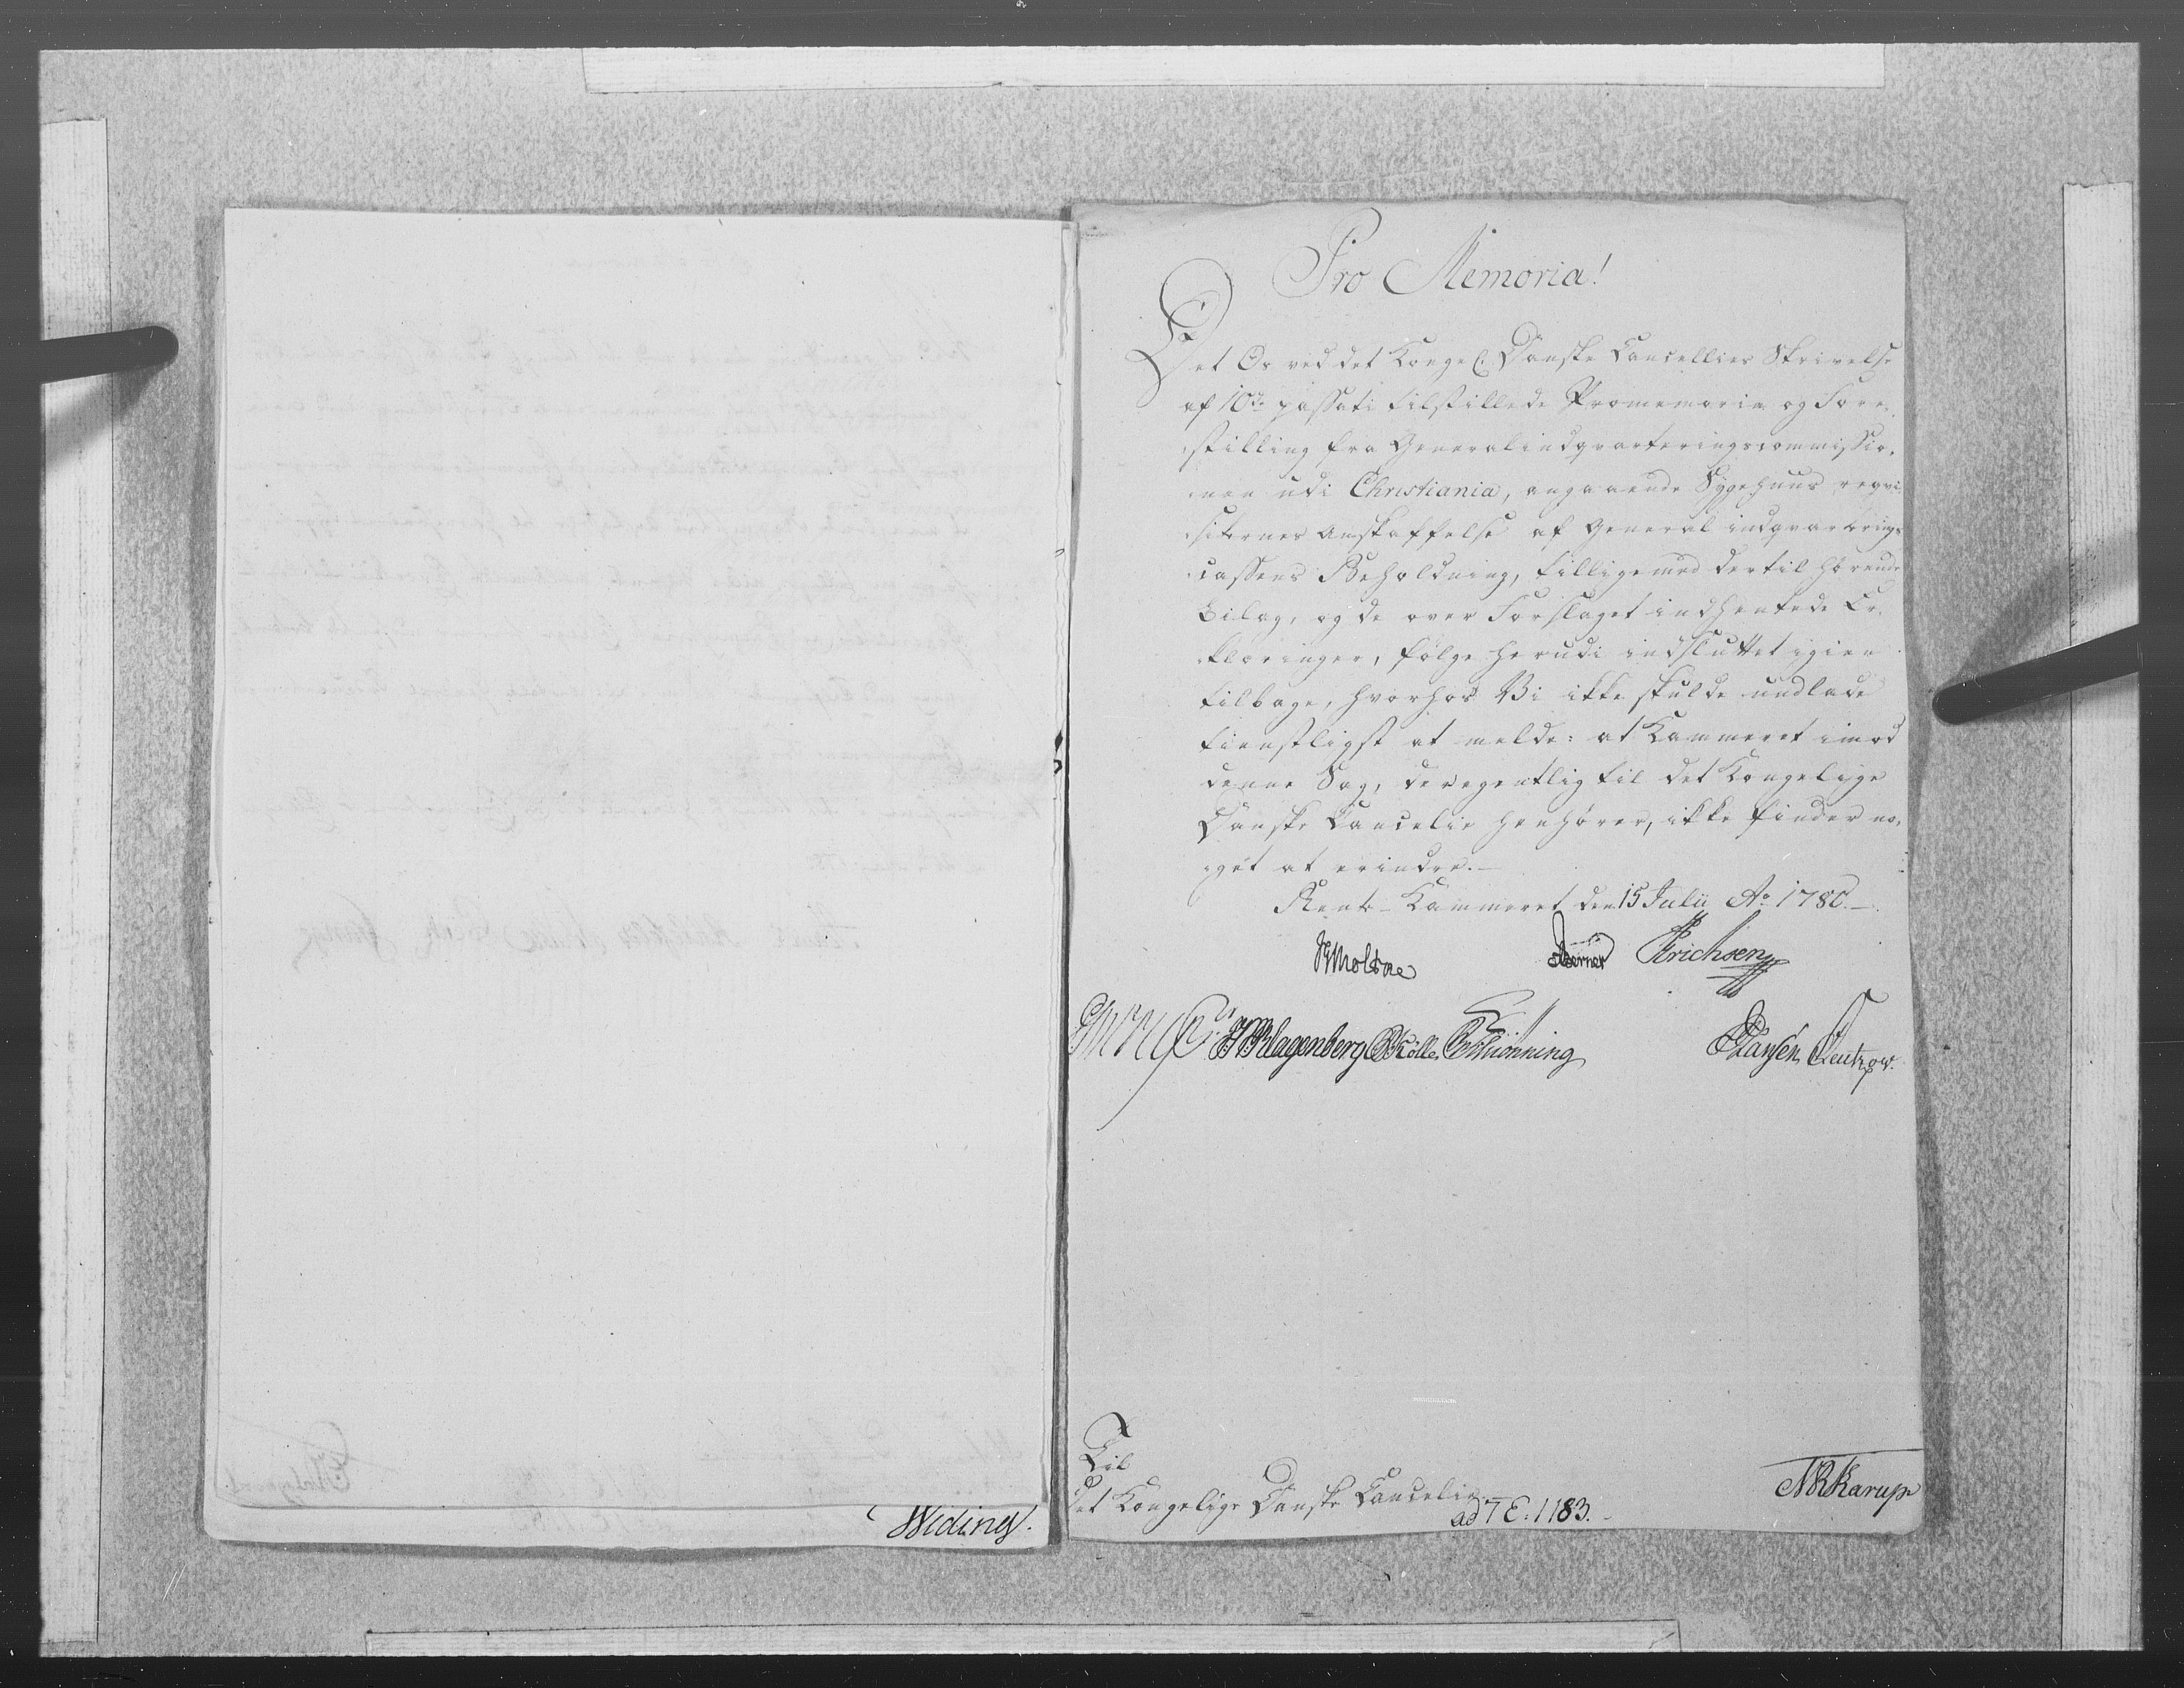 Pro Memoria!
Det Os ved det Kongel. Danske Cancellies Skrivelse
af 10de passati tilstillede Promemoria og Fore-
stilling fra Generalindqvarteringscommissio-
nen udi Christiania, angaaende Sygehuus reqvi-
siternes Anskaffelse af General indqvarterings
cassens Beholdning, tilligemed dertil hørende
Bilag, og de over Forslaget indhentede Er-
klæringer, følge herudi indsluttet igien
tilbage, hvorhos Vi ikke skulde undlade
tienstligst at melde: at Kammeret imod
denne Sag, der egentlig til det Kongelige
Danske Cancelie henhører, ikke finder no-
get at erindre.-
Rente-Kammeret den 15 Julii Ao 1780.-
Moltke Berner Erichsen
Klagenberg Kölle Hansen
Til
Det Kongelige Danske Cancelie.
ad 7 E. 1183.
NRKarup
Widing.